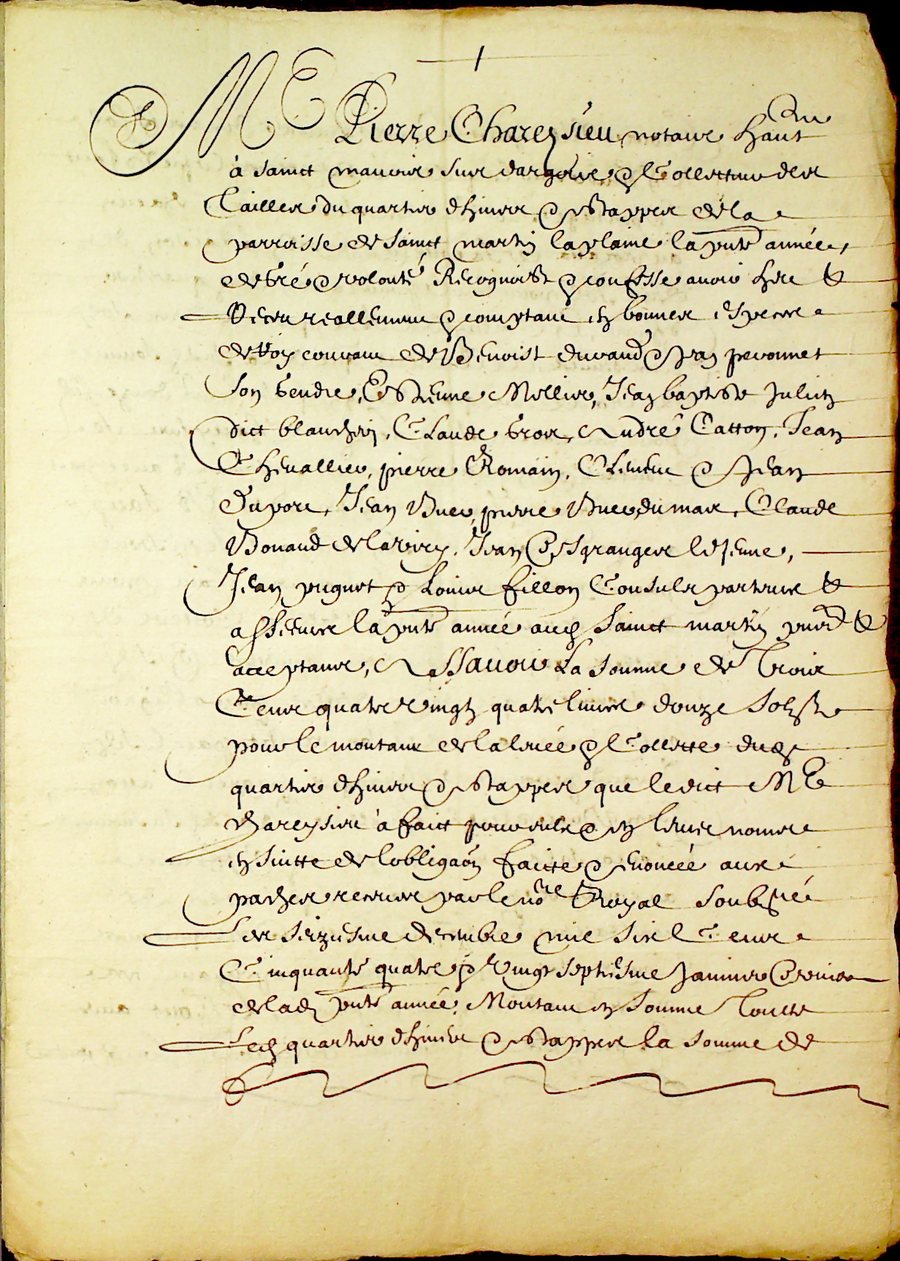 Me Pierre Chareysieu notaire habant
à Sainct maurice sur dargoire & Collecteur des
Tailles du quartier dhiuer & estappes de la
parroisse de Sainct martin laplaine la pnte année,
de gré & volonté Recognoist & confesse auoir heu &
Receu reallement & comptant en bonnes especes
de Roy courant de Benoist durand & Jan peronnet
son gendre, Estienne Mellier, Jean baptiste Julien
dict blanchin, Claude gros, André Catton, Jean
Cheuallier, pierre Romain, Clement & Jean
dupore, Jean Buer, pierre Buer dumas, Claude
Bonand de la viry, Jean Desgranges le Jeune,
Jean piguet & Louis fillon Consulz parties &
asseeurs la pnte année aud Sainct martin pnts &
acceptants, Assauoir La Somme de Trois
Cens quatre vingtz quatre liures douze Solz
pour le montant de la leuée & Collecte dud
quartier dhiuer & estappes que ledict Me
Chareysieu à faict pour eulx & en leurs noms
en suitte de lobligaon faicte & enoncée aux
pactes receues par le nore Royal Soubzné
Les Seiziesme decembre mil six Cens
Cinquante quatre & vingt septiesme Januier
de lad pnte année, Montant en somme toutte
Led quartier dhiuer & estappes la somme de